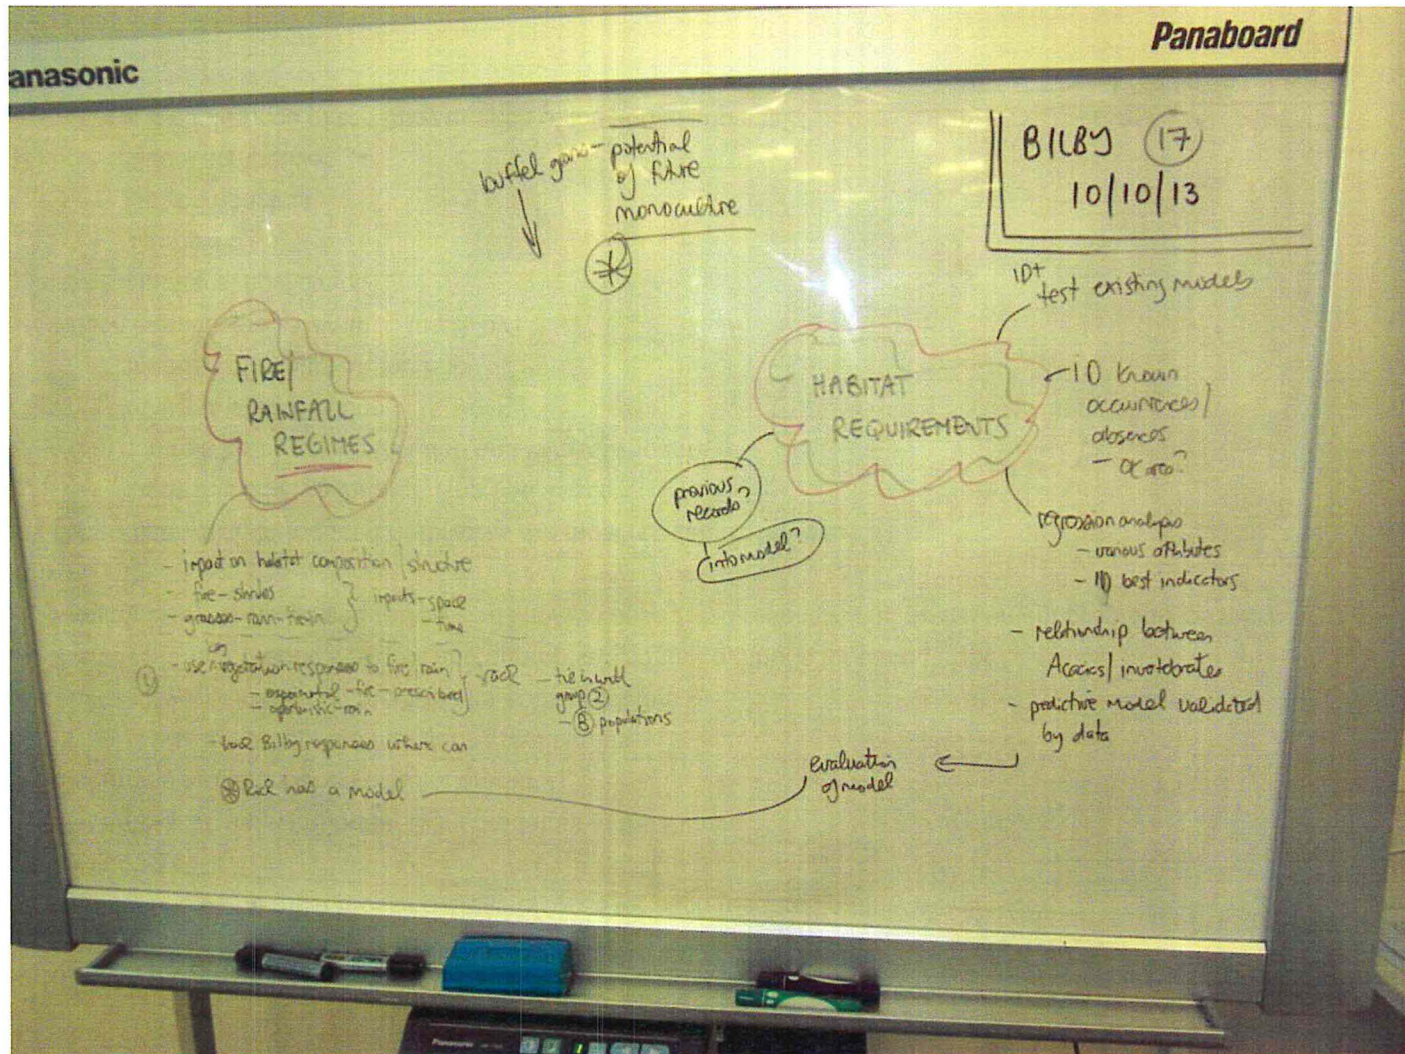 Panaboard
anasonic
BILBY 17
10/10/13
buffel grass - potential
of future
monoculture
FIRE/
RAINFALL
REGIMES
- impact on habitat composition / structure
- fire - shrubs
- grasses - rain -
inputs - space
- time
1
- use vegetation responses to fire / rain
- experimental - fire - prescribed
- opportunistic - rain
- tie in with
group 2
- B populations
Bilby responses where can
Rick has a model
HABITAT
REQUIREMENTS
ID +
test existing models
- ID known
occurrences /
absences
- area?
previous
records?
into model?
regression analysis
- various attributes
- ID best indicators
- relationship between
Acacias / invertebrates
- predictive model validated
by data
evaluation
of model
Panasonic